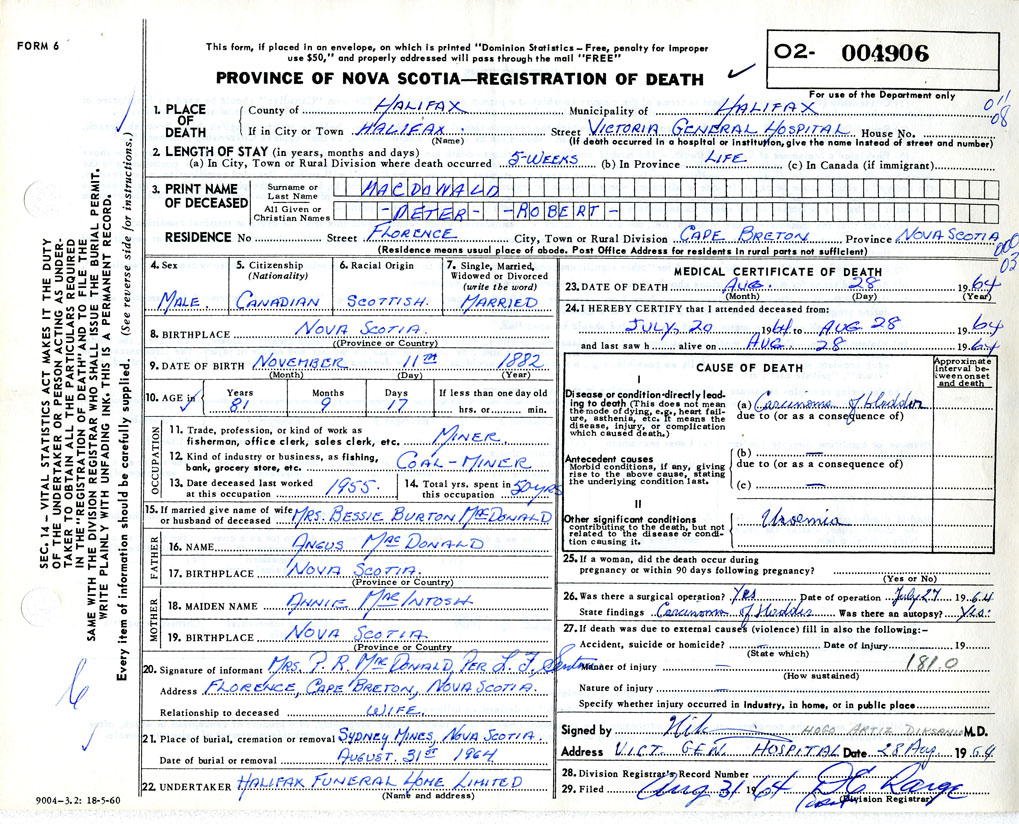 FORM 6
This form, if placed in an envelope, on which is printed "Dominion Statistics – Free, penalty for improper
use $50," and properly addressed will pass through the mail "FREE"
PROVINCE OF NOVA SCOTIA—REGISTRATION OF DEATH ✓
O2- 004906
For use of the Department only
011
08
1. PLACE OF DEATH
County of HALIFAX Municipality of HALIFAX
If in City or Town HALIFAX. Street VICTORIA GENERAL HOSPITAL House No.
(Name) (If death occurred in a hospital or institution, give the name instead of street and number)
2. LENGTH OF STAY (in years, months and days)
(a) In City, Town or Rural Division where death occurred 5-WEEKS (b) In Province LIFE (c) In Canada (if immigrant)
3. PRINT NAME OF DECEASED
Surname or Last Name MACDONALD
All Given or Christian Names -PETER- -ROBERT-
RESIDENCE No Street FLORENCE City, Town or Rural Division CAPE BRETON Province NOVA SCOTIA
(Residence means usual place of abode. Post Office Address for residents in rural parts not sufficient)
000
03
4. Sex MALE.
5. Citizenship (Nationality) CANADIAN
6. Racial Origin SCOTTISH.
7. Single, Married, Widowed or Divorced (write the word) MARRIED
8. BIRTHPLACE NOVA SCOTIA.
(Province or Country)
9. DATE OF BIRTH NOVEMBER 11TH 1882
(Month) (Day) (Year)
10. AGE in Years 81 Months 9 Days 17 If less than one day old hrs. or min.
OCCUPATION
11. Trade, profession, or kind of work as
fisherman, office clerk, sales clerk, etc. MINER.
12. Kind of industry or business, as fishing,
bank, grocery store, etc. COAL-MINER
13. Date deceased last worked
at this occupation 1955.
14. Total yrs. spent in
this occupation 50 yrs
15. If married give name of wife
or husband of deceased MRS. BESSIE BURTON MACDONALD
FATHER
16. NAME ANGUS MACDONALD
17. BIRTHPLACE NOVA SCOTIA.
(Province or Country)
MOTHER
18. MAIDEN NAME ANNIE MACINTOSH
19. BIRTHPLACE NOVA SCOTIA
(Province or Country)
20. Signature of informant MRS. P. R. MACDONALD, PER L. F.
Address FLORENCE, CAPE BRETON, NOVA SCOTIA.
Relationship to deceased WIFE.
21. Place of burial, cremation or removal SYDNEY MINES, NOVA SCOTIA.
Date of burial or removal AUGUST. 31ST 1964
22. UNDERTAKER HALIFAX FUNERAL HOME LIMITED
(Name and address)
MEDICAL CERTIFICATE OF DEATH
23. DATE OF DEATH AUG. 28 1964
(Month) (Day) (Year)
24. I HEREBY CERTIFY that I attended deceased from:
JULY, 20 1964 to AUG 28 1964
and last saw h alive on AUG 28 1964
CAUSE OF DEATH
Approximate interval between onset and death
I
Disease or condition directly leading to death (This does not mean the mode of dying, e.g., heart failure, asthenia, etc. It means the disease, injury, or complication which caused death.)
(a) Carcinoma of bladder
due to (or as a consequence of)
Antecedent causes
Morbid conditions, if any, giving rise to the above cause, stating the underlying condition last.
(b) —
due to (or as a consequence of)
(c) —
II
Other significant conditions
contributing to the death, but not related to the disease or condition causing it.
Uremia
25. If a woman, did the death occur during
pregnancy or within 90 days following pregnancy?
(Yes or No)
26. Was there a surgical operation? Yes Date of operation July 27 1964
State findings Carcinoma of bladder Was there an autopsy? Yes.
27. If death was due to external causes (violence) fill in also the following:–
Accident, suicide or homicide? — Date of injury 19
(State which)
Manner of injury — 181.0
(How sustained)
Nature of injury —
Specify whether injury occurred in industry, in home, or in public place
Signed by HOFO ARTIZ M.D.
Address VICT GEN HOSPITAL Date 28 Aug 1964
28. Division Registrar's Record Number
29. Filed Aug 31 1964
(Division Registrar)
SEC. 14 – VITAL STATISTICS ACT MAKES IT THE DUTY
OF THE UNDERTAKER OR PERSON ACTING AS UNDER-
TAKER TO OBTAIN ALL THE PARTICULARS REQUIRED
IN THE "REGISTRATION OF DEATH" AND TO FILE THE
SAME WITH THE DIVISION REGISTRAR WHO SHALL ISSUE THE BURIAL PERMIT.
WRITE PLAINLY WITH UNFADING INK. THIS IS A PERMANENT RECORD.
Every item of information should be carefully supplied. (See reverse side for instructions.)
9004–3.2: 18-5-60